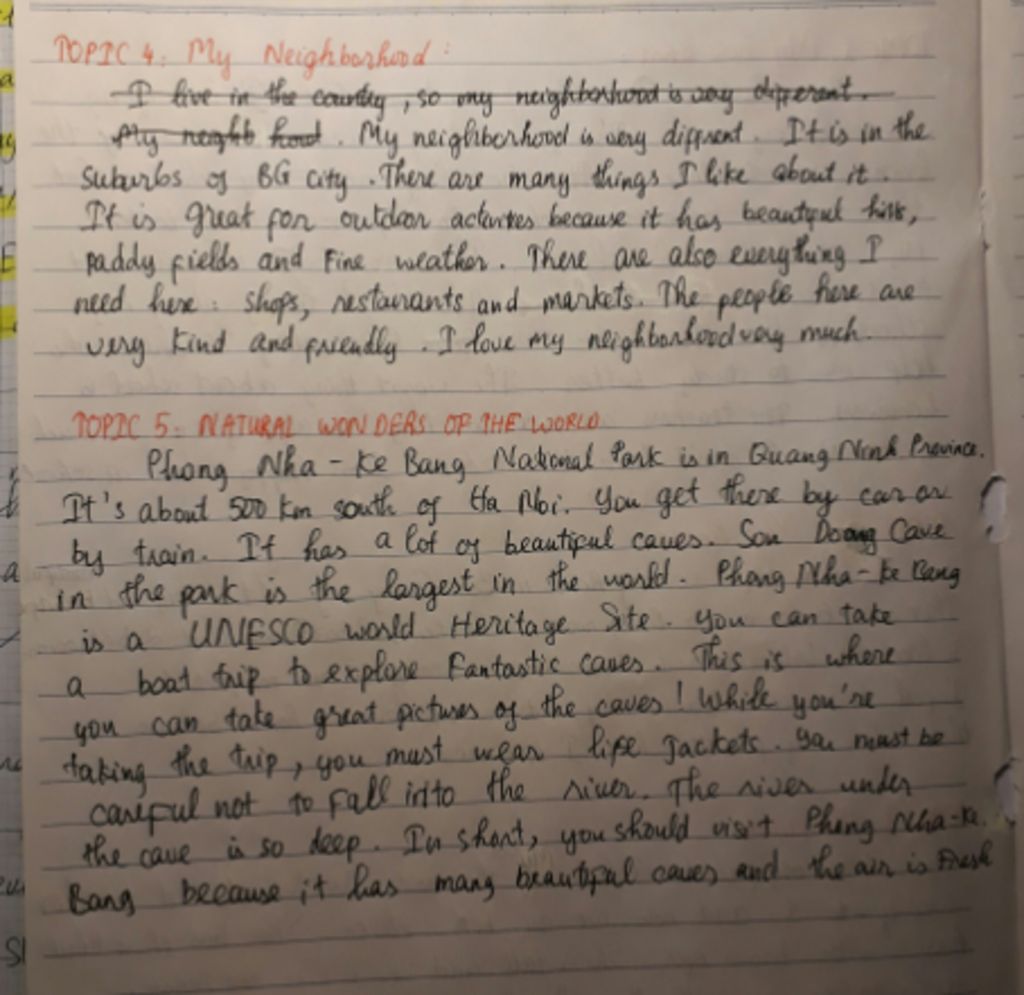 TOPIC 4: My Neighborhood:
I live in the country, so my neighborhood is very different.
My neighb hood. My neighborhood is very diffrent. It is in the
suburbs of BG city. There are many things I like about it.
It is great for outdoor activites because it has beautyful hills,
paddy fields and Fine weather. There are also everything I
need here: shops, restaurants and markets. The people here are
very kind and friendly. I love my neighborhood very much.
TOPIC 5: NATURAL WONDERS OF THE WORLD
Phong Nha - Ke Bang National Park is in Quang Ninh Province.
It's about 500 km south of Ha Noi. You get there by car or
by train. It has a lot of beautiful caves. Son Doong Cave
in the park is the largest in the world. Phong Nha - Ke Bang
is a UNESCO world Heritage Site. You can take
a boat trip to explore Fantastic caves. This is where
you can take great pictures of the caves! While you're
taking the trip, you must wear life Jackets. You must be
careful not to Fall into the river. The river under
the cave is so deep. In short, you should visit Phong Nha - Ke
Bang because it has many beautiful caves and the air is Fresh